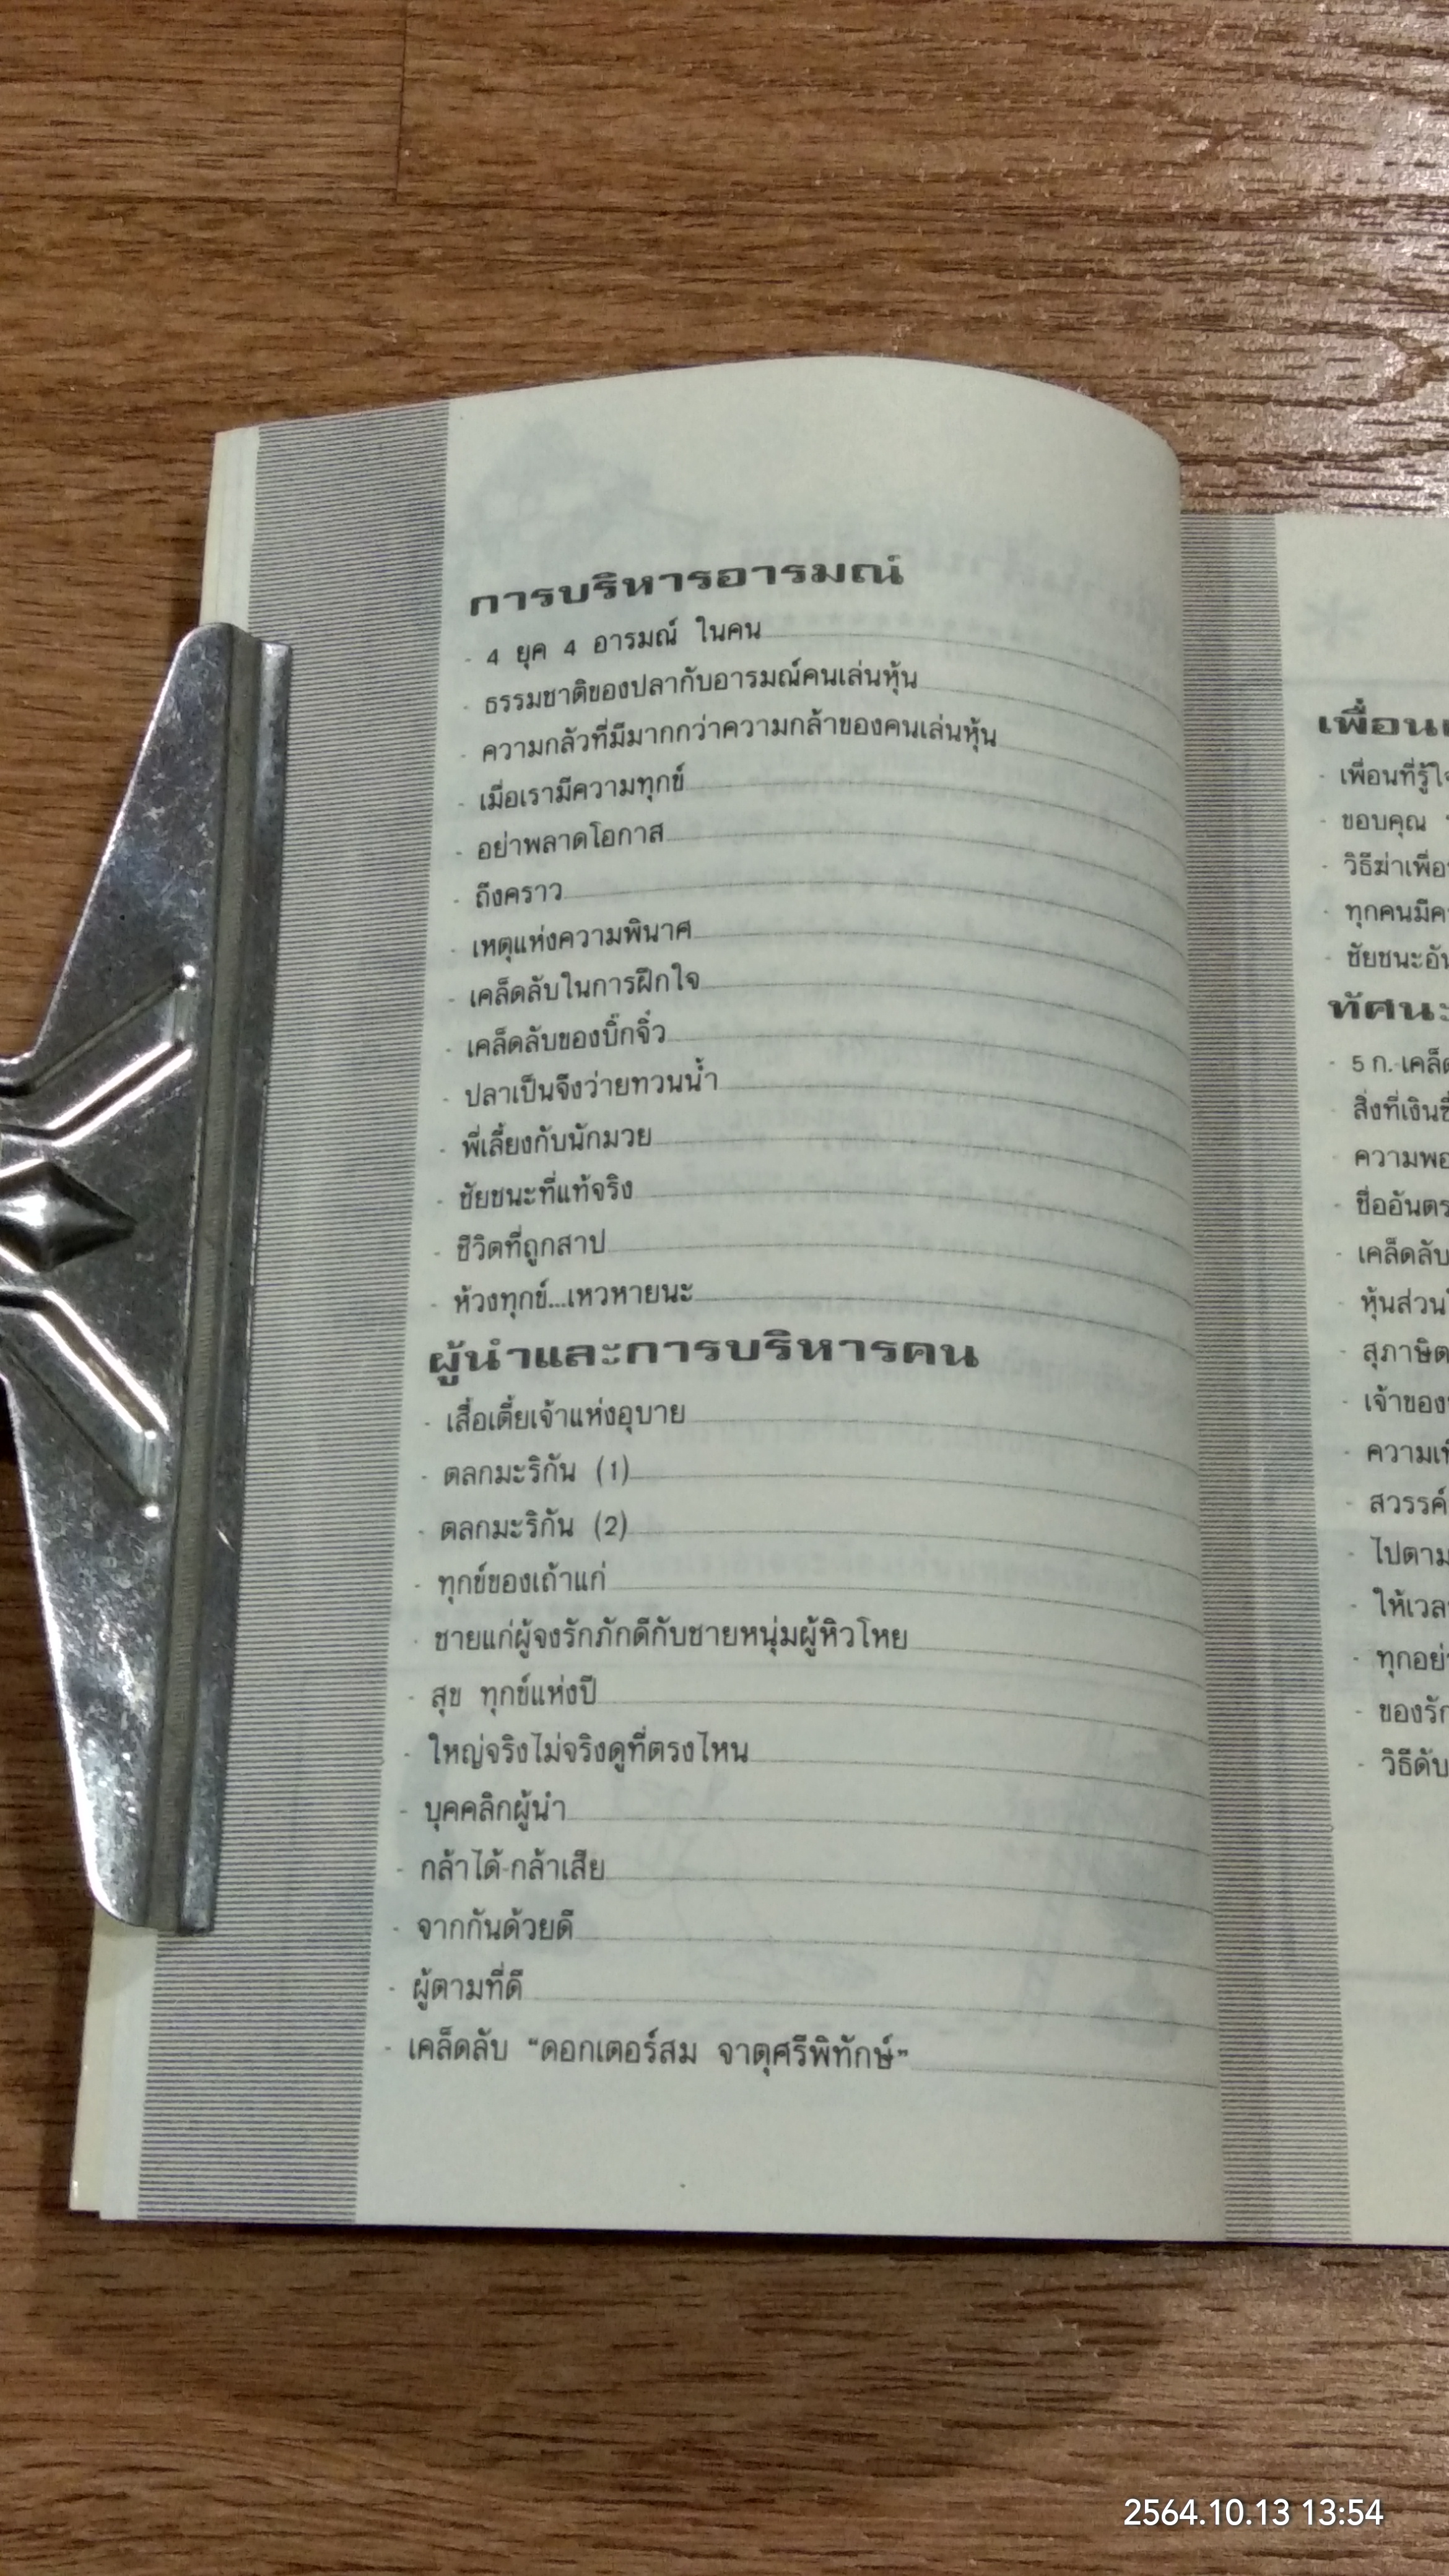 การบริหารอารมณ์
- 4 ยุค 4 อารมณ์ ในคน
- ธรรมชาติของปลากับอารมณ์คนเล่นหุ้น
- ความกลัวที่มีมากกว่าความกล้าของคนเล่นหุ้น
- เมื่อเรามีความทุกข์
- อย่าพลาดโอกาส
- ถึงคราว
- เหตุแห่งความพินาศ
- เคล็ดลับในการฝึกใจ
- เคล็ดลับของบิ๊กจิ๋ว
- ปลาเป็นจึงว่ายทวนน้ำ
- พี่เลี้ยงกับนักมวย
- ชัยชนะที่แท้จริง
- ชีวิตที่ถูกสาป
- ห้วงทุกข์...เหวหายนะ
ผู้นำและการบริหารคน
- เสื้อเตี้ยเจ้าแห่งอุบาย
- ตลกมะริกัน (1)
- ตลกมะริกัน (2)
- ทุกข์ของเถ้าแก่
- ชายแก่ผู้จงรักภักดีกับชายหนุ่มผู้หิวโหย
- สุข ทุกข์แห่งปี
- ใหญ่จริงไม่จริงดูที่ตรงไหน
- บุคคลิกผู้นำ
- กล้าได้-กล้าเสีย
- จากกันด้วยดี
- ผู้ตามที่ดี
- เคล็ดลับ "ดอกเตอร์สม จาตุศรีพิทักษ์"
เพื่อน
- เพื่อนที่รู้ใ
- ขอบคุณ
- วิธีฆ่าเพื่อ
- ทุกคนมีค
- ชัยชนะอัน
ทัศนะ
- 5 ก. เคล็ด
- สิ่งที่เงินซื้
- ความพอ
- ชื่ออันตร
- เคล็ดลับ
- หุ้นส่วน
- สุภาษิต
- เจ้าของ
- ความเ
- สวรรค์
- ไปตาม
- ให้เวล
- ทุกอย่
- ของรัก
- วิธีดับ
2564.10.13 13:54